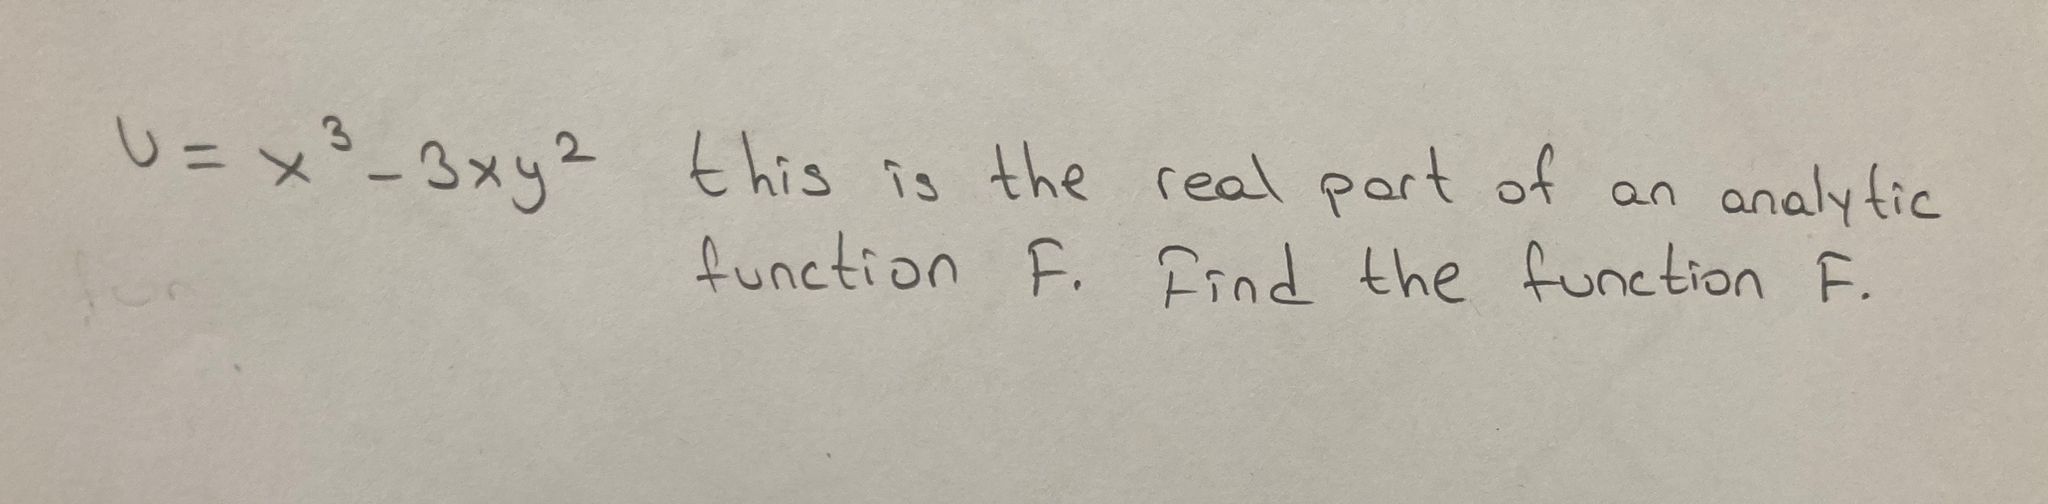 U = x³ - 3xy² this is the real part of an analytic
function F. Find the function F.
fun